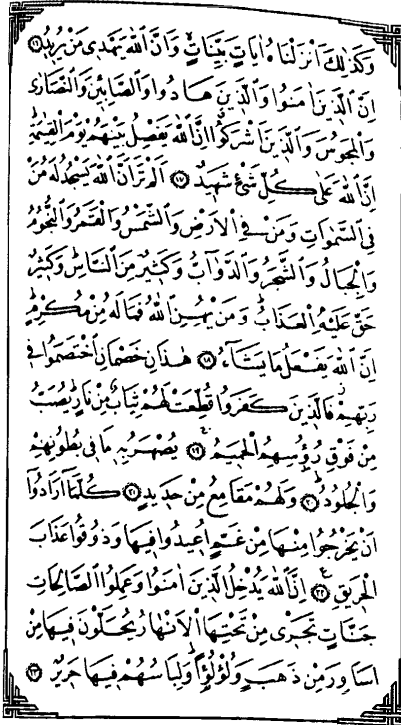 وَكَذٰلِكَ اَنْزَلْنَاهُ اٰيَاتٍ بَيِّنَاتٍ وَاَنَّ اللّٰهَ يَهْدٖى مَنْ يُرٖيدُ ﴿١٦﴾
اِنَّ الَّذٖينَ اٰمَنُوا وَالَّذٖينَ هَادُوا وَالصَّابِپٖٔينَ وَالنَّصَارٰى
وَالْمَجُوسَ وَالَّذٖينَ اَشْرَكُوا اِنَّ اللّٰهَ يَفْصِلُ بَيْنَهُمْ يَوْمَ الْقِيٰمَةِ
اِنَّ اللّٰهَ عَلٰى كُلِّ شَیْءٍ شَهٖيدٌ ﴿١٧﴾ اَلَمْ تَرَ اَنَّ اللّٰهَ يَسْجُدُ لَهُ مَنْ
فِى السَّمٰوَاتِ وَمَنْ فِى الْاَرْضِ وَالشَّمْسُ وَالْقَمَرُ وَالنُّجُومُ
وَالْجِبَالُ وَالشَّجَرُ وَالدَّوَابُّ وَكَثٖيرٌ مِنَ النَّاسِ وَكَثٖيرٌ
حَقَّ عَلَيْهِ الْعَذَابُ وَمَنْ يُهِنِ اللّٰهُ فَمَا لَهُ مِنْ مُكْرِمٍ
اِنَّ اللّٰهَ يَفْعَلُ مَا يَشَاءُ ﴿١٨﴾ هٰذَانِ خَصْمَانِ اخْتَصَمُوا فٖى
رَبِّهِمْ فَالَّذٖينَ كَفَرُوا قُطِّعَتْ لَهُمْ ثِيَابٌ مِنْ نَارٍ يُصَبُّ
مِنْ فَوْقِ رُؤُسِهِمُ الْحَمٖيمُ ﴿١٩﴾ يُصْهَرُ بِهٖ مَا فٖى بُطُونِهِمْ
وَالْجُلُودُ ﴿٢٠﴾ وَلَهُمْ مَقَامِعُ مِنْ حَدٖيدٍ ﴿٢١﴾ كُلَّمَا اَرَادُوا
اَنْ يَخْرُجُوا مِنْهَا مِنْ غَمٍّ اُعٖيدُوا فٖيهَا وَذُوقُوا عَذَابَ
الْحَرٖيقِ ﴿٢٢﴾ اِنَّ اللّٰهَ يُدْخِلُ الَّذٖينَ اٰمَنُوا وَعَمِلُوا الصَّالِحَاتِ
جَنَّاتٍ تَجْرٖى مِنْ تَحْتِهَا الْاَنْهَارُ يُحَلَّوْنَ فٖيهَا مِنْ
اَسَاوِرَ مِنْ ذَهَبٍ وَلُؤْلُؤًا وَلِبَاسُهُمْ فٖيهَا حَرٖيرٌ ﴿٢٣﴾